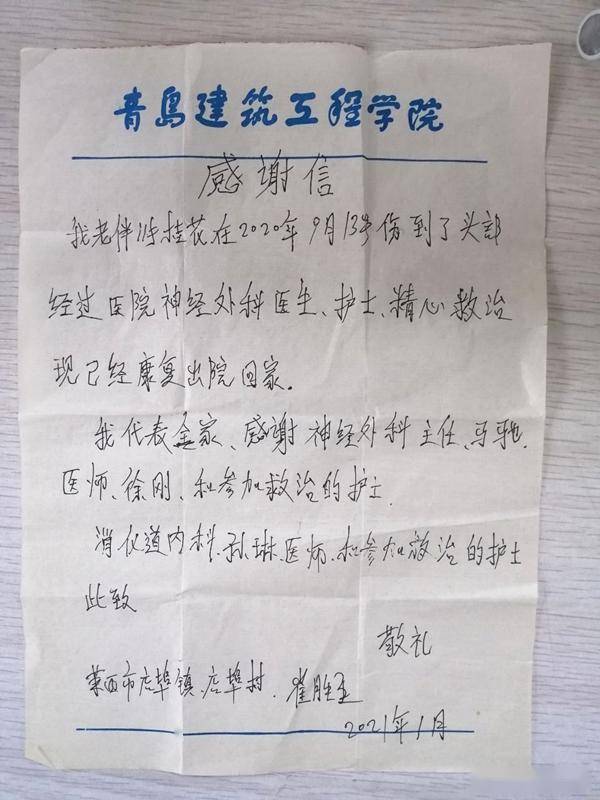 青岛建筑工程学院
感谢信
我老伴许桂花在2020年9月13号伤到了头部
经过医院神经外科医生、护士、精心救治
现已经康复出院回家.
我代表全家、感谢神经外科主任、马驰.
医师、徐刚、和参加救治的护士.
消化道内科.孙琳.医师.和参加救治的护士
此致
敬礼
莱西市店埠镇.店埠村.崔胜
2021年1月